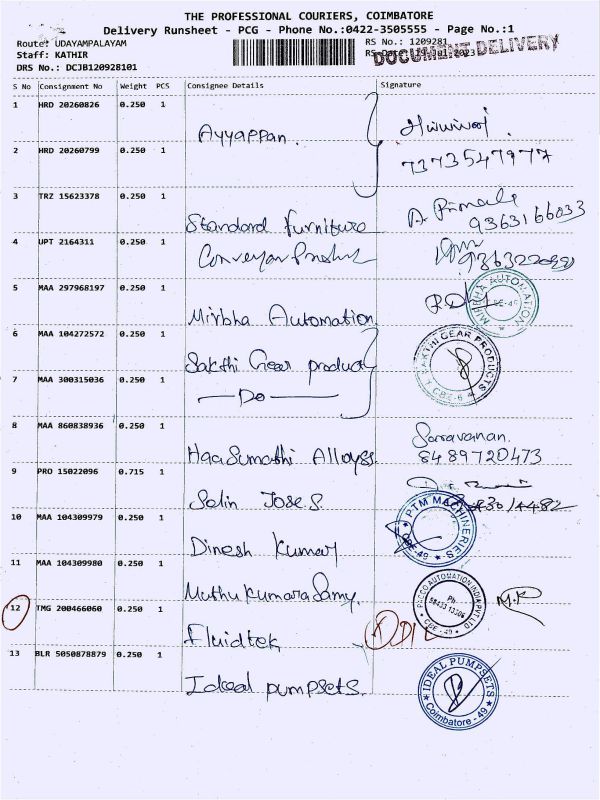 THE PROFESSIONAL COURIERS, COIMBATORE
Delivery Runsheet - PCG - Phone No.:0422-3505555 - Page No.:1
Route: UDAYAMPALAYAM
RS No.: 1209281
Staff: KATHIR
DOCUMENT DELIVERY
DRS No.: DCJB120928101
S No Consignment No Weight PCS Consignee Details Signature
1 HRD 20260826 0.250 1
Ayyappan.
2 HRD 20260799 0.250 1
7373547977
3 TRZ 15623378 0.250 1
Standard Furniture
9363166033
4 UPT 2164311 0.250 1
5 MAA 297968197 0.250 1
Mirbha Automation
MIRBHA AUTOMATION
6 MAA 104272572 0.250 1
Sakthi Gear product
SAKTHI GEAR PRODUCTS
CBE-6
7 MAA 300315036 0.250 1
Do
8 MAA 860838936 0.250 1
Saravanan.
HaaSumathi Alloyss
8489720473
9 PRO 15022096 0.715 1
Salin Jose S
10 MAA 104309979 0.250 1
PTM MACHINERIES
CBE-49
Dinesh Kumar
11 MAA 104309980 0.250 1
MuthuKumaraSamy.
PACCO AUTOMATION INDIA PVT LTD
Ph
CBE-49
M.R
12 TMG 200466060 0.250 1
Fluidtek
13 BLR 5050878879 0.250 1
Ideal pumpsets.
IDEAL PUMPSETS
Coimbatore-49